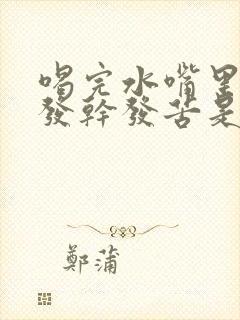 喝完水嘴里
發幹發苦是
鄭蒲